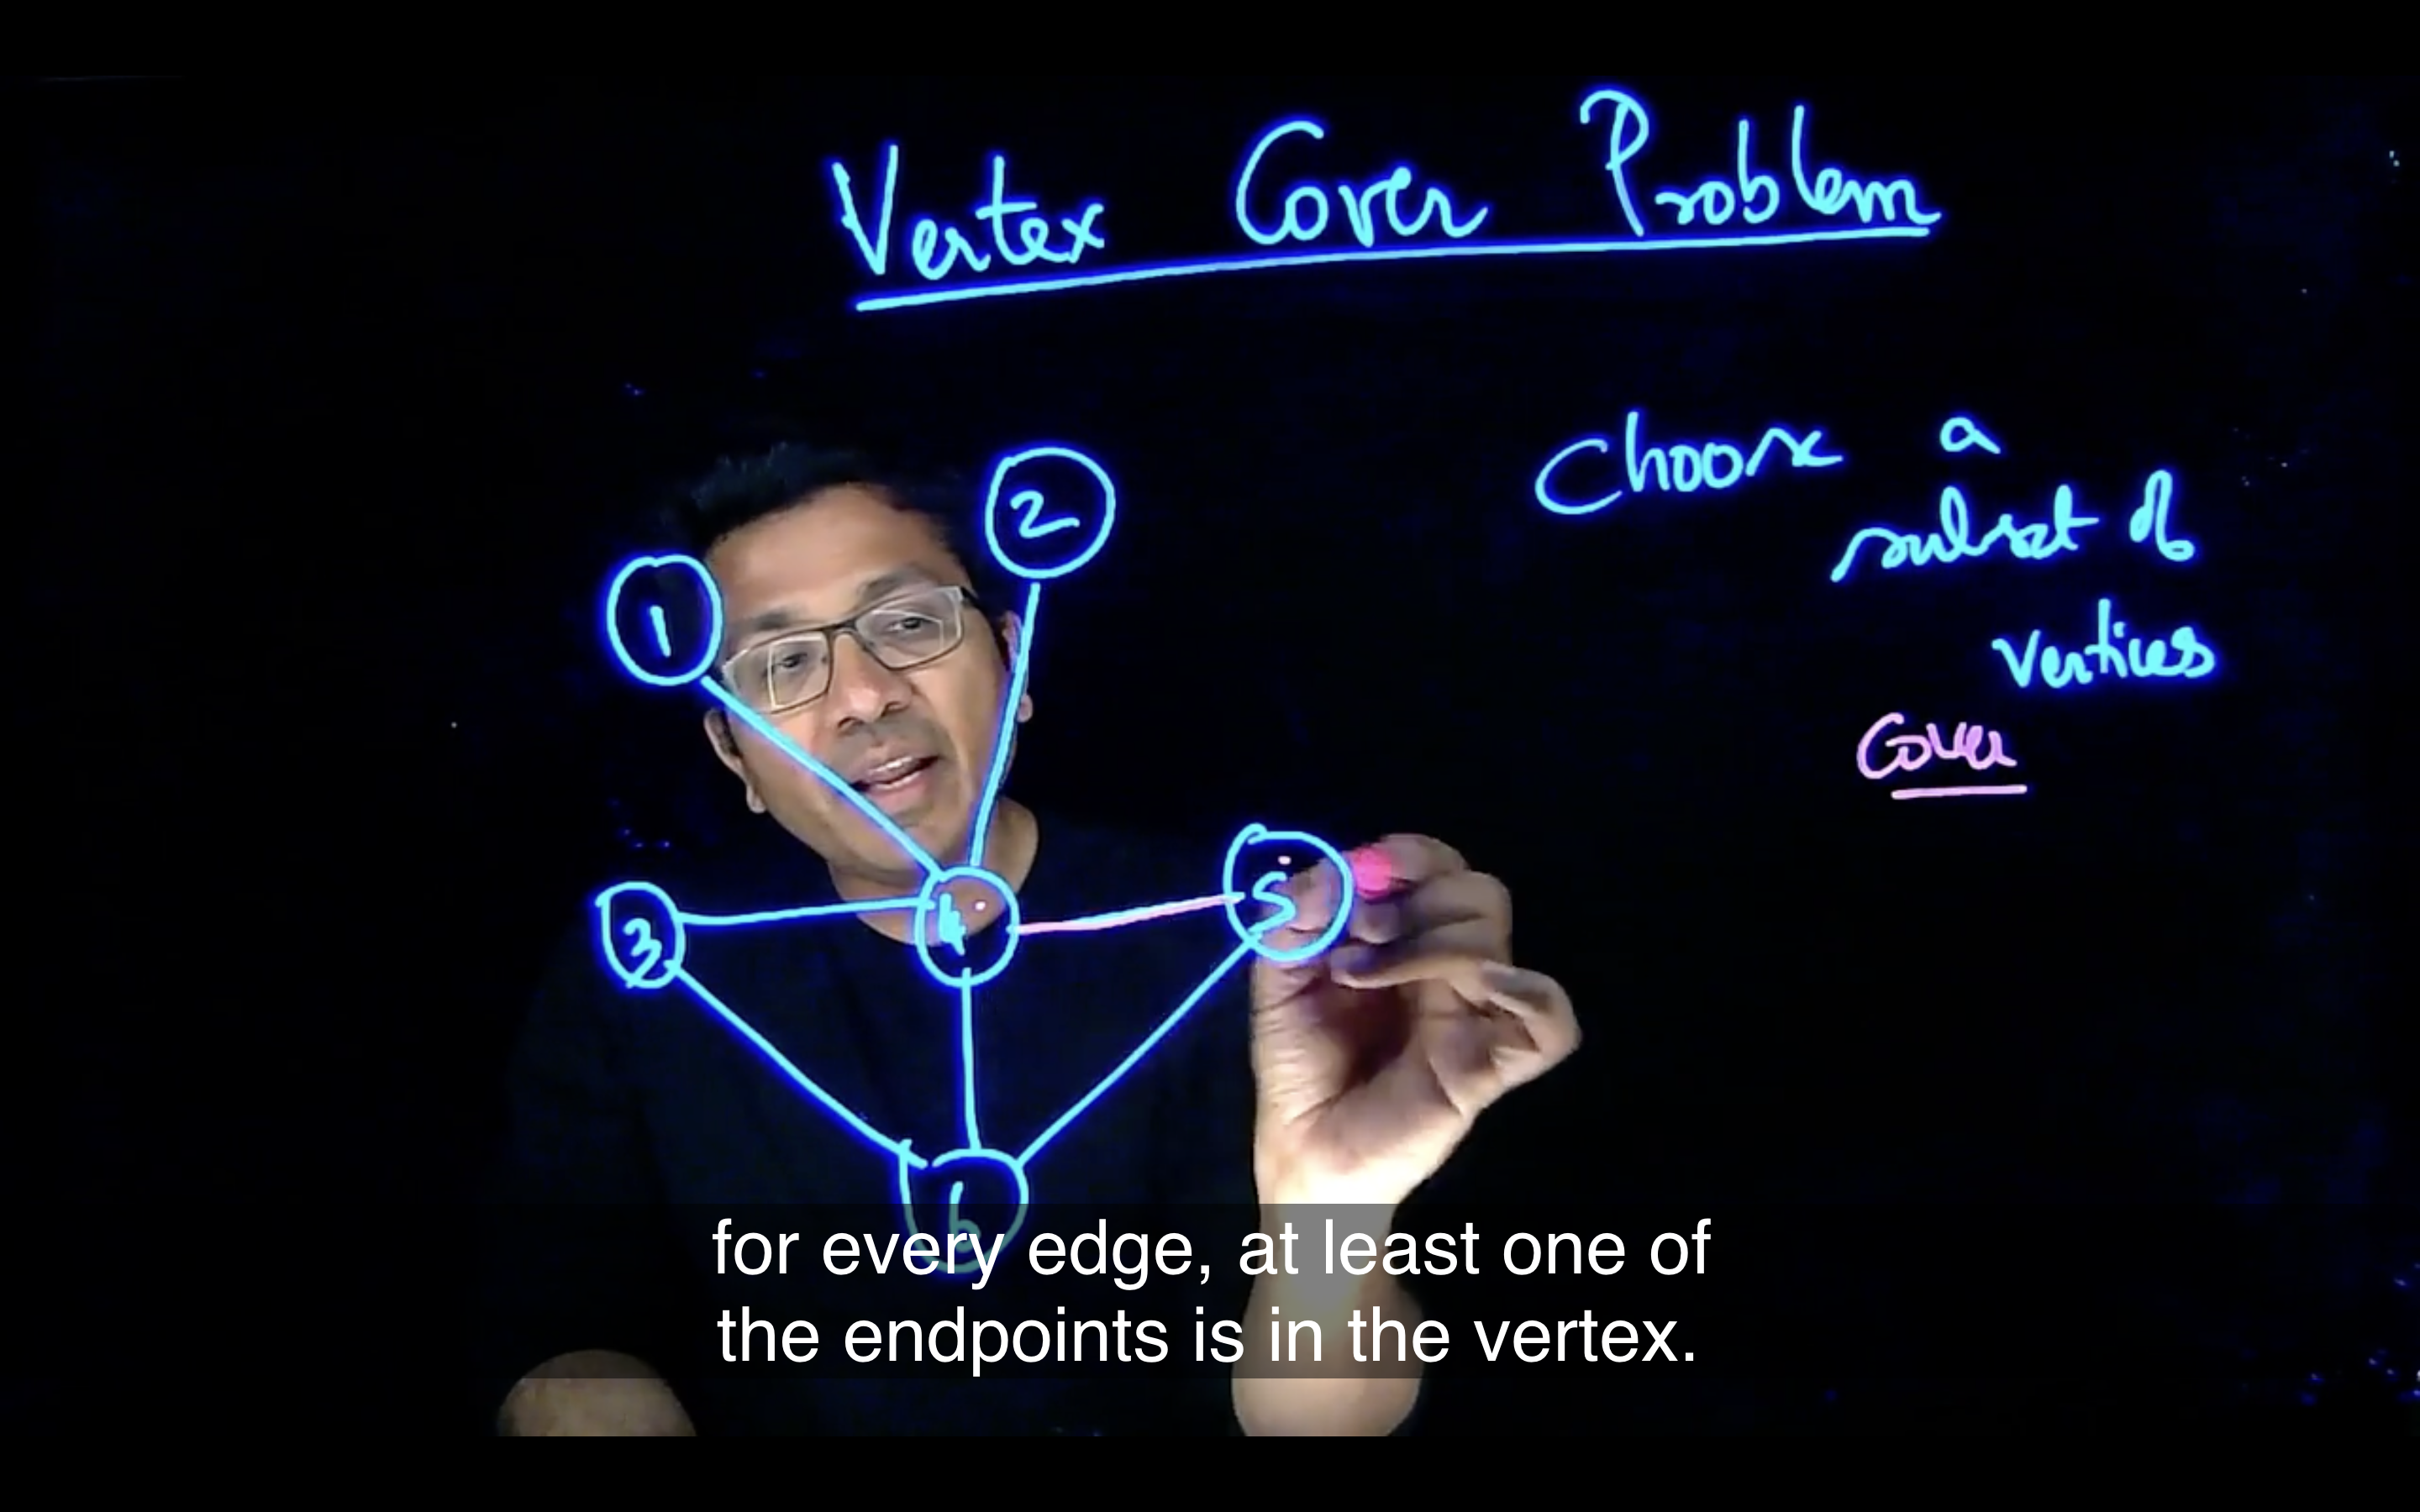 Vertex Cover Problem
Choose a
subset of
vertices
Cover
2
1
3
4
5
6
for every edge, at least one of
the endpoints is in the vertex.